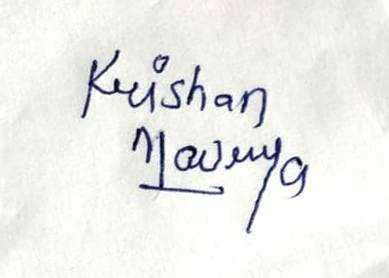 Krishan
Maurya